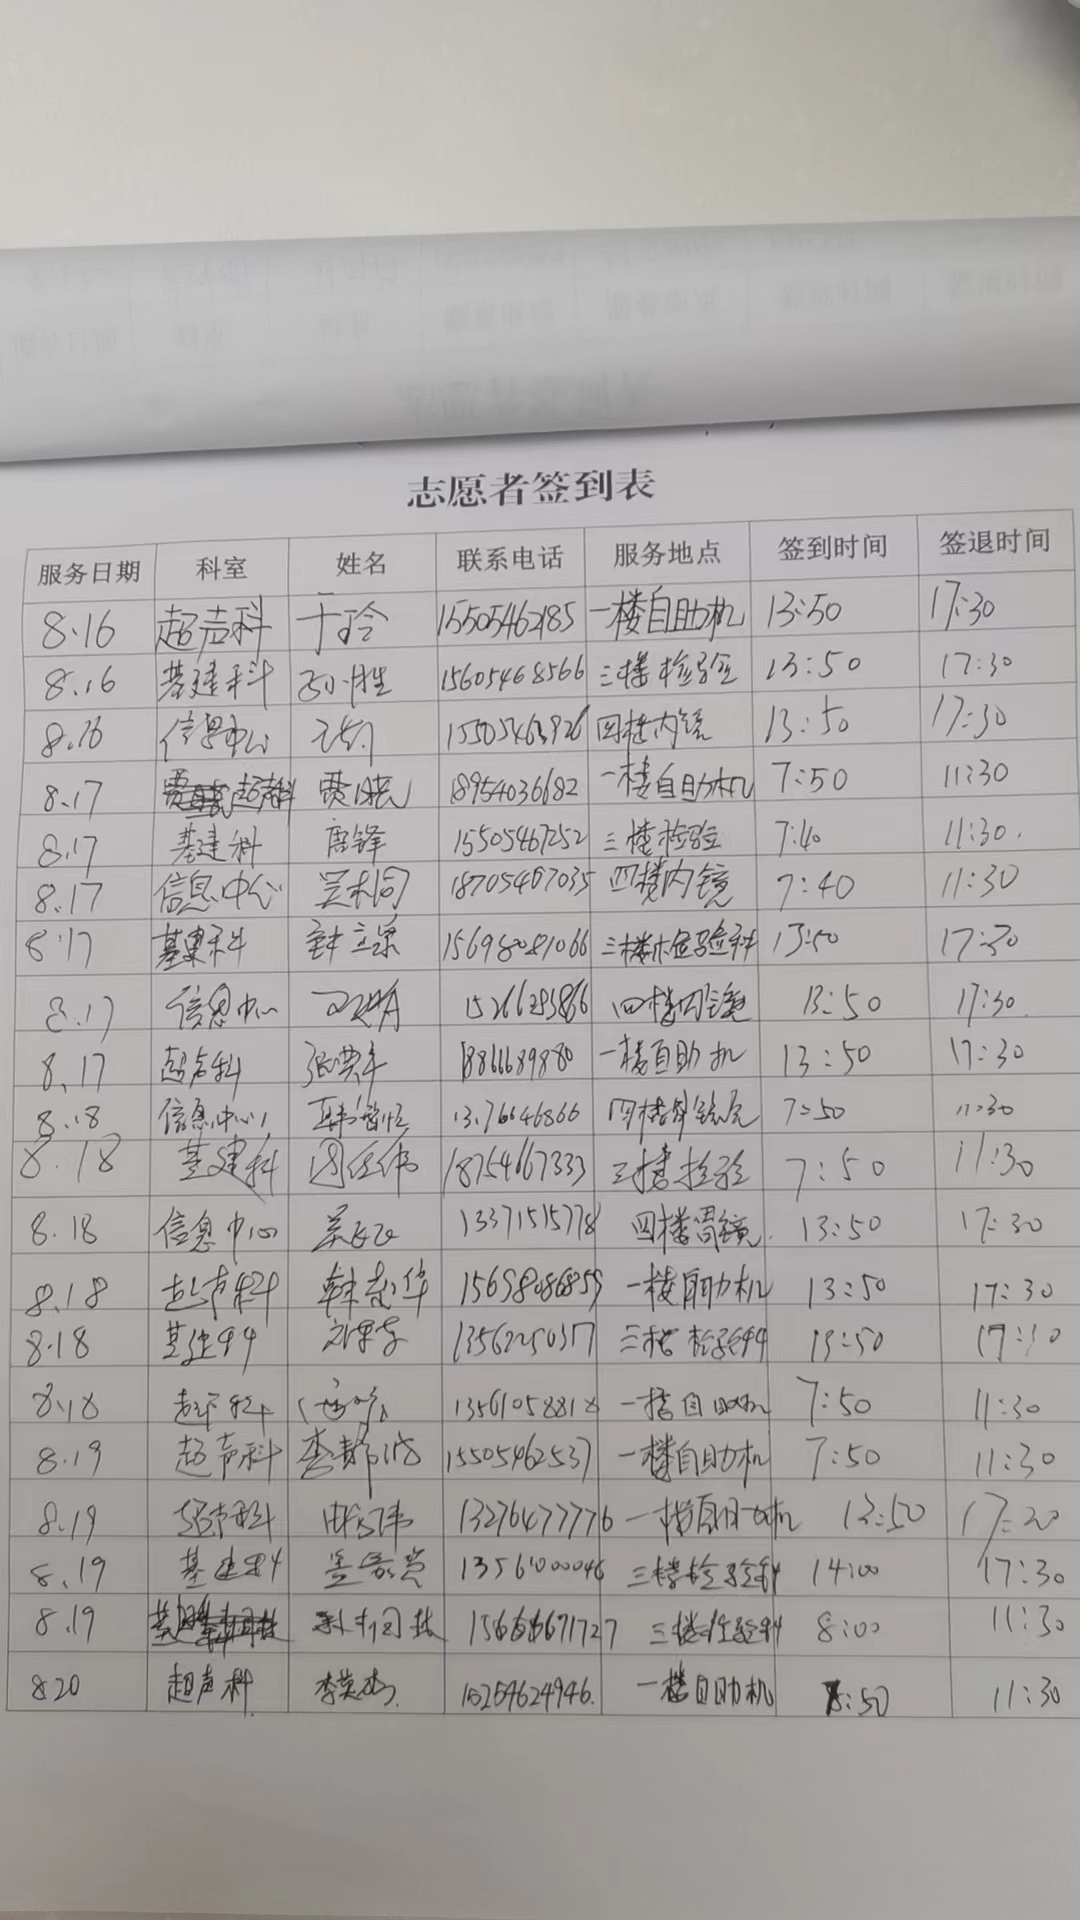 志愿者签到表
服务日期 科室 姓名 联系电话 服务地点 签到时间 签退时间
8.16 超声科 于玲 15505462185 一楼自助机 13:50 17:30
8.16 基建科 15605468566 三楼检验 13:50 17:30
8.16 信息中心 四楼内镜 13:50 17:30
8.17 超声科 贾晓 18954036682 一楼自助机 7:50 11:30
8.17 基建科 唐锋 15505467252 三楼检验 7:40 11:30.
8.17 信息中心 18705467035 四楼内镜 7:40 11:30
8.17 基建科 15698081066 三楼检验科 13:50 17:30
8.17 信息中心 四楼内镜 13:50 17:30.
8.17 超声科 18866689880 一楼自助机 13:50 17:30
8.18 信息中心 四楼 7:50 11:30
8.18 基建科 18754667333 三楼检验 7:50 11:30
8.18 信息中心 13371515778 四楼胃镜. 13:50 17:30
8.18 超声科 15698086859 一楼自助机 13:50 17:30
8.18 基建科 13562250317 三楼检验科 13:50 17:30
8.18 超声科 13561058818 一楼自助机 7:50 11:30
8.19 超声科 15505462537 一楼自助机 7:50 11:30
8.19 超声科 13276477776 一楼自助机 13:50
8.19 基建科 三楼检验科 14:00 17:30
8.19 三楼检验科 8:00 11:30
8.20 超声科 李英杰 15254624946. 一楼自助机 :50 11:30